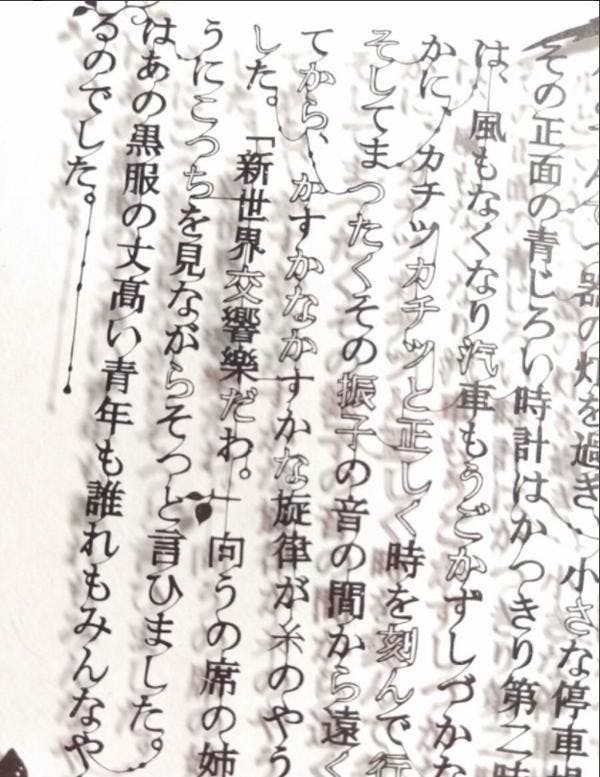 てつ器の灯を過ぎ、小さな停車
その正面の青じろい時計はかつきり第二時
は、風もなくなり汽車もうごかずしづかな
かに、カチツカチツと正しく時を刻んで行
そしてまつたくその振子の音の間から遠く
てから、かすかなかすかな旋律が糸のやう
した。「新世界交響樂だわ。」向うの席の姉
うにこつちを見ながらそつと言ひました。
はあの黒服の丈高い青年も誰れもみんなや
るのでした。